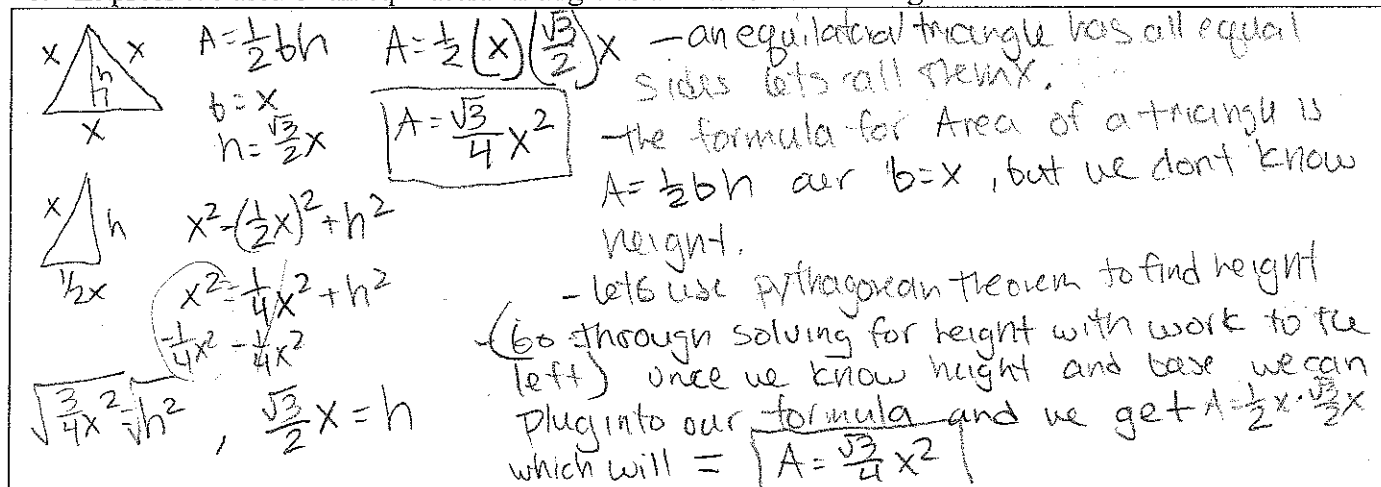 x x
h
x
A = 1/2 bh
b = x
h = √3/2 x
A = 1/2 (x)(√3/2)x
A = √3/4 x²
x h
1/2x
x² = (1/2x)² + h²
x² = 1/4x² + h²
-1/4x² -1/4x²
√3/4x² = √h² , √3/2 x = h
- an equilateral triangle has all equal
sides lets call them x.
- the formula for Area of a triangle is
A = 1/2 bh our b = x , but we dont know
height.
- lets use pythagorean theorem to find height
- (Go through solving for height with work to the
left) once we know height and base we can
plug into our formula and we get A = 1/2 x · √3/2 x
which will = A = √3/4 x²